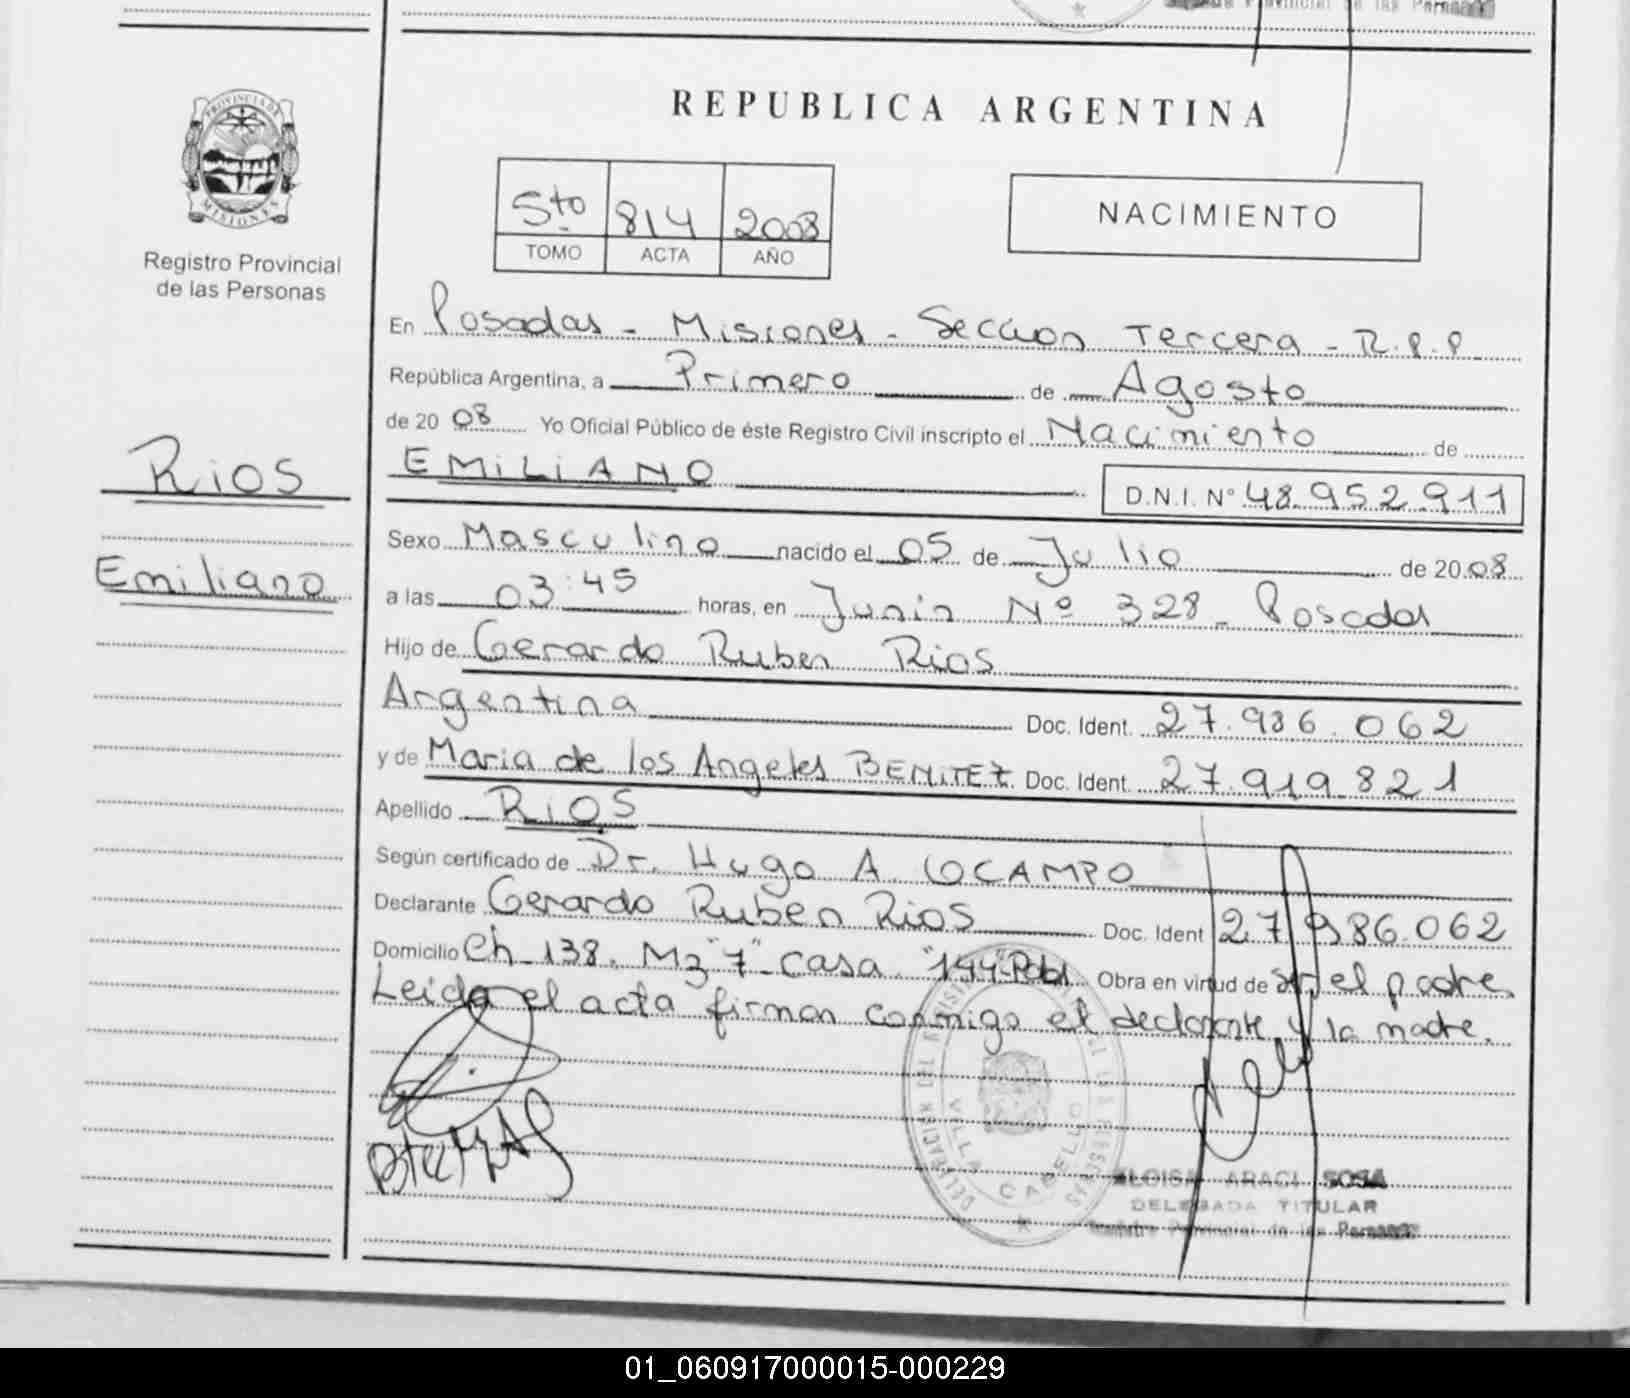 PROVINCIA DE
MISIONES
Registro Provincial
de las Personas
Rios
Emiliano
REPUBLICA ARGENTINA
5to 814 2008
TOMO ACTA AÑO
NACIMIENTO
En Posadas - Misiones - Seccion Tercera - R.P.P.
República Argentina, a Primero de Agosto
de 20 08 Yo Oficial Público de éste Registro Civil inscripto el Nacimiento de
EMILIANO D.N.I. Nº 48.952.911
Sexo Masculino nacido el 05 de Julio de 20 08
a las 03:45 horas, en Junin Nº 328 - Posadas
Hijo de Gerardo Ruben Rios
Argentina Doc. Ident. 27.986.062
y de Maria de los Angeles BENITEZ Doc. Ident. 27.919.821
Apellido RIOS
Según certificado de Dr. Hugo A. OCAMPO
Declarante Gerardo Ruben Rios Doc. Ident 27.986.062
Domicilio Ch 138. Mz "7" Casa "144" Pobl Obra en virtud de ser el padre.
Leida el acta firman conmigo el declarante y la madre.
VILLA CABELLO
ELOISA ARACI SOSA
DELEGADA TITULAR
Registro Provincial de las Personas
01_060917000015-000229